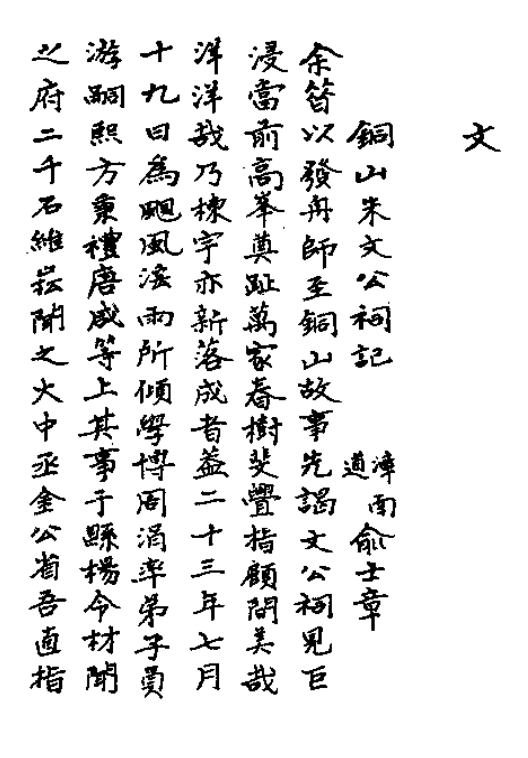 文
銅山朱文公祠記　漳南道俞士章
余昝以發舟師至銅山故事先謁文公祠見巨
浸當前高峯奠趾萬家春樹斐亹指顧間美哉
洋洋哉乃棟宇亦新落成者蓋二十三年七月
十九日為颶風滛雨所傾學博周涓率弟子員
游嗣熙方秉禮唐咸等上其事于縣楊令材聞
之府二千石維崧聞之大中丞金公省吾直指